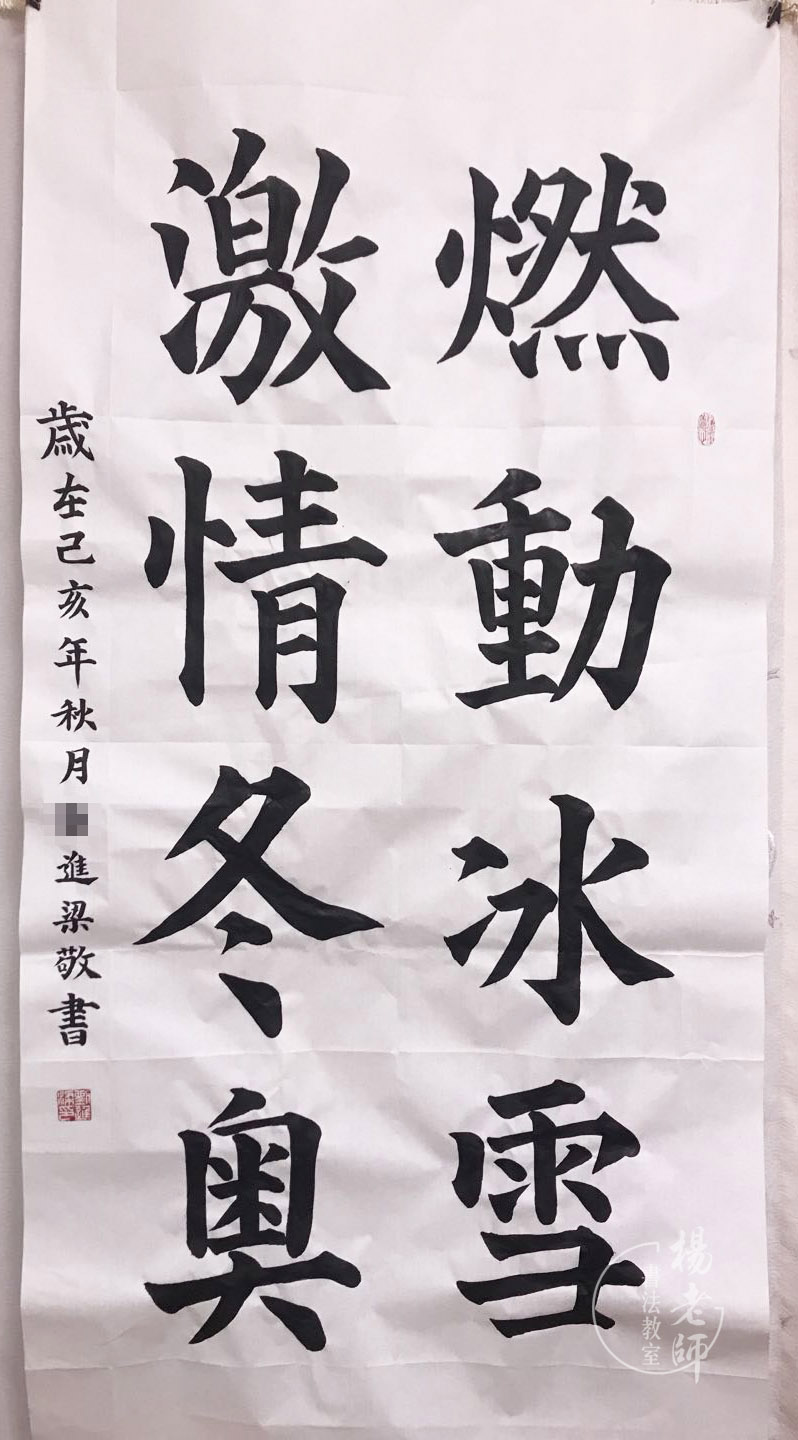 燃動冰雪
激情冬奧
歲在己亥年秋月
進梁敬書
楊老師
書法教室